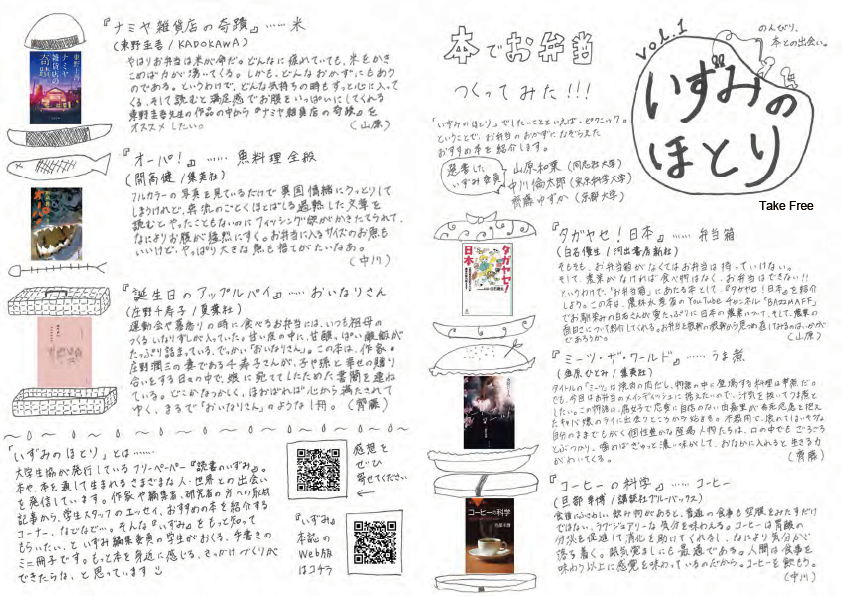 『ナミヤ雑貨店の奇蹟』…… 米
(東野圭吾/KADOKAWA)
やはりお弁当は米が命だ。どんなに疲れていても、米をかき
こめば力が湧いてくる。しかも、どんなおかずにもあう
のである。というわけで、どんな気持ちの時もすっと心に入って
くる、そして読むと満足感でお腹をいっぱいにしてくれる
東野圭吾先生の作品の中から『ナミヤ雑貨店の奇蹟』を
オススメしたい。 (山原)
『オーパ!』…… 魚料理全般
(開高健/集英社)
フルカラーの写真を見ているだけで異国情緒にウットリして
しまうけれど、濁流のごとくほとばしる過熱した文章を
読むとやったこともないのにフィッシング欲がかきたてられて、
なによりお腹が猛烈にすく。お弁当に入るサイズのお魚も
いいけど、やっぱり大きな魚も捨てがたいなあ。
(中川)
『誕生日のアップルパイ』…… おいなりさん
(庄野千寿子/夏葉社)
運動会で墓参りの時に食べるお弁当には、いつも祖母の
つくるいなりずしが入っていた。甘い皮の中に、甘酸っぱい酢飯が
たっぷり詰まっている、でっかい「おいなりさん」。この本は、作家・
庄野潤三の妻である千寿子さんが、子や孫と幸せの贈り
合いをする日々の中で、娘に宛ててしたためた書簡を連ね
ている。どこかなつかしく、ほおばれば心から満たされて
ゆく、まるで「おいなりさん」のような1冊。 (齊藤)
「いずみのほとり」とは……
大学生協が発行しているフリーペーパー『読書のいずみ』。
本や、本を通して生まれるさまざまな人・世界との出会い
を発信しています。作家や編集者、研究者の方への取材
記事から、学生スタッフのエッセイ、おすすめの本を紹介する
コーナー、などなど…。そんな『いずみ』をもっと知って
もらいたい、といずみ編集委員の学生がおくる、手書きの
ミニ冊子です。もっと本を身近に感じる、きっかけづくりが
できたらな、と思っています
感想を
ぜひ
寄せてください
『いずみ』
本誌の
Web版
は コチラ
本でお弁当
つくってみた!!!
vol.1
いずみの
ほとり
のんびり、
本との出会い。
Take Free
「いずみのほとり」でしたいことといえば、ピクニック。
ということで、お弁当のおかずになぞらえた
おすすめ本を紹介します。
選書した
いずみ委員
山原和葉 (同志社大学)
中川倫太郎 (東京科学大学)
齊藤ゆずか (京都大学)
『タガヤセ!日本』…… 弁当箱
(白石優生/河出書房新社)
そもそも、お弁当箱がなくてはお弁当は持っていけない。
そして、農業がなければ食べ物はなく、お弁当はできない!!
というわけで、「お弁当箱」にあたる本として、『タガヤセ!日本』を紹介
しよう。この本は、農林水産省のYouTubeチャンネル「BAZZMAFF」
でお馴染みの白石さんが愛たっぷりに日本の農業について、そして、農業の
面白さについて紹介してくれる。お弁当を根本の根本から見つめ直してみるのは、いかが
であろうか。 (山原)
『ミーツ・ザ・ワールド』…… うま煮
(金原ひとみ/集英社)
『コーヒーの科学』…… コーヒー
(旦部幸博/講談社ブルーバックス)
食後にふさわしい飲み物があると、普通の食事も空腹をみたすだけ
ではない、ラグジュアリーな気分を味わえる。コーヒーは胃酸の
分泌を促進して消化を助けてくれるし、なにより気分が
落ち着く。眠気覚ましにも最適である。人間は食事を
味わう以上に感覚を味わっているのだから。コーヒーを飲もう。
(中川)